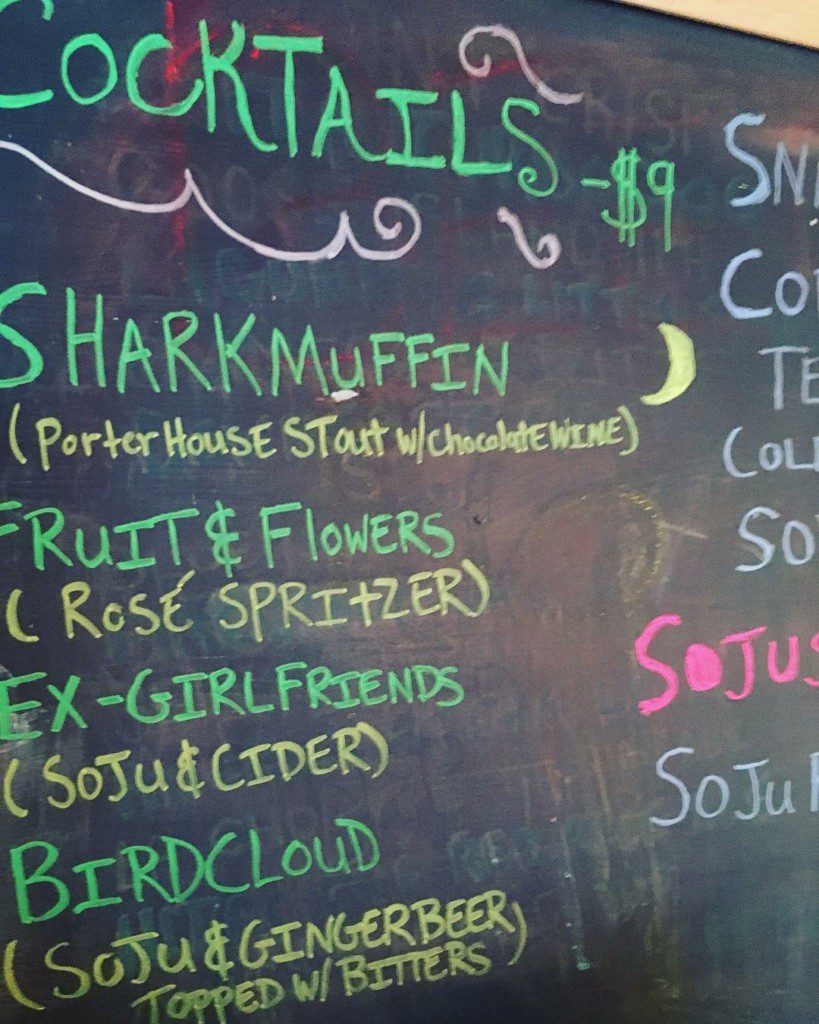 COCKTAILS -$9
SHARKMUFFIN
(PorterHOUSE STout w/chocolatE WINE)
FRUIT & FlOWERS
(ROSÉ SPRITZER)
EX-GIRLFRIENDS
(SOJU & CIDER)
BIRDCLOUD
(SOJU & GINGERBEER
TOPPED W/ BITTERS)
SOJUS
SOJU